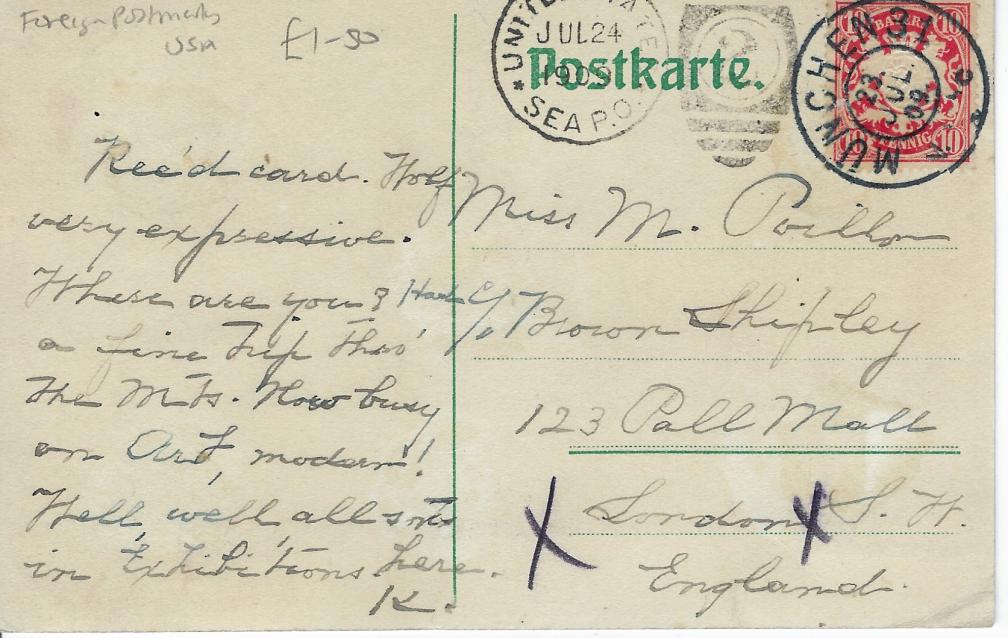 Foreign Postmarks
USA
£1-50
UNITED STATE
JUL 24
1909
SEA P.O.
2
Postkarte.
MÜNCHEN 31
23
JUL
09
BAYERN
10 10
PFENNIG
10
Rec'd card. Wolf
very expressive.
Where are you? Had
a fine Trip Thro'
the Mts. Now busy
on Art, modern!
Well, well, all sorts
in Exhibitions here.
K.
Miss M. Poillon
c/o Brown Shipley
123 Pall Mall
London S. W.
England.
X X